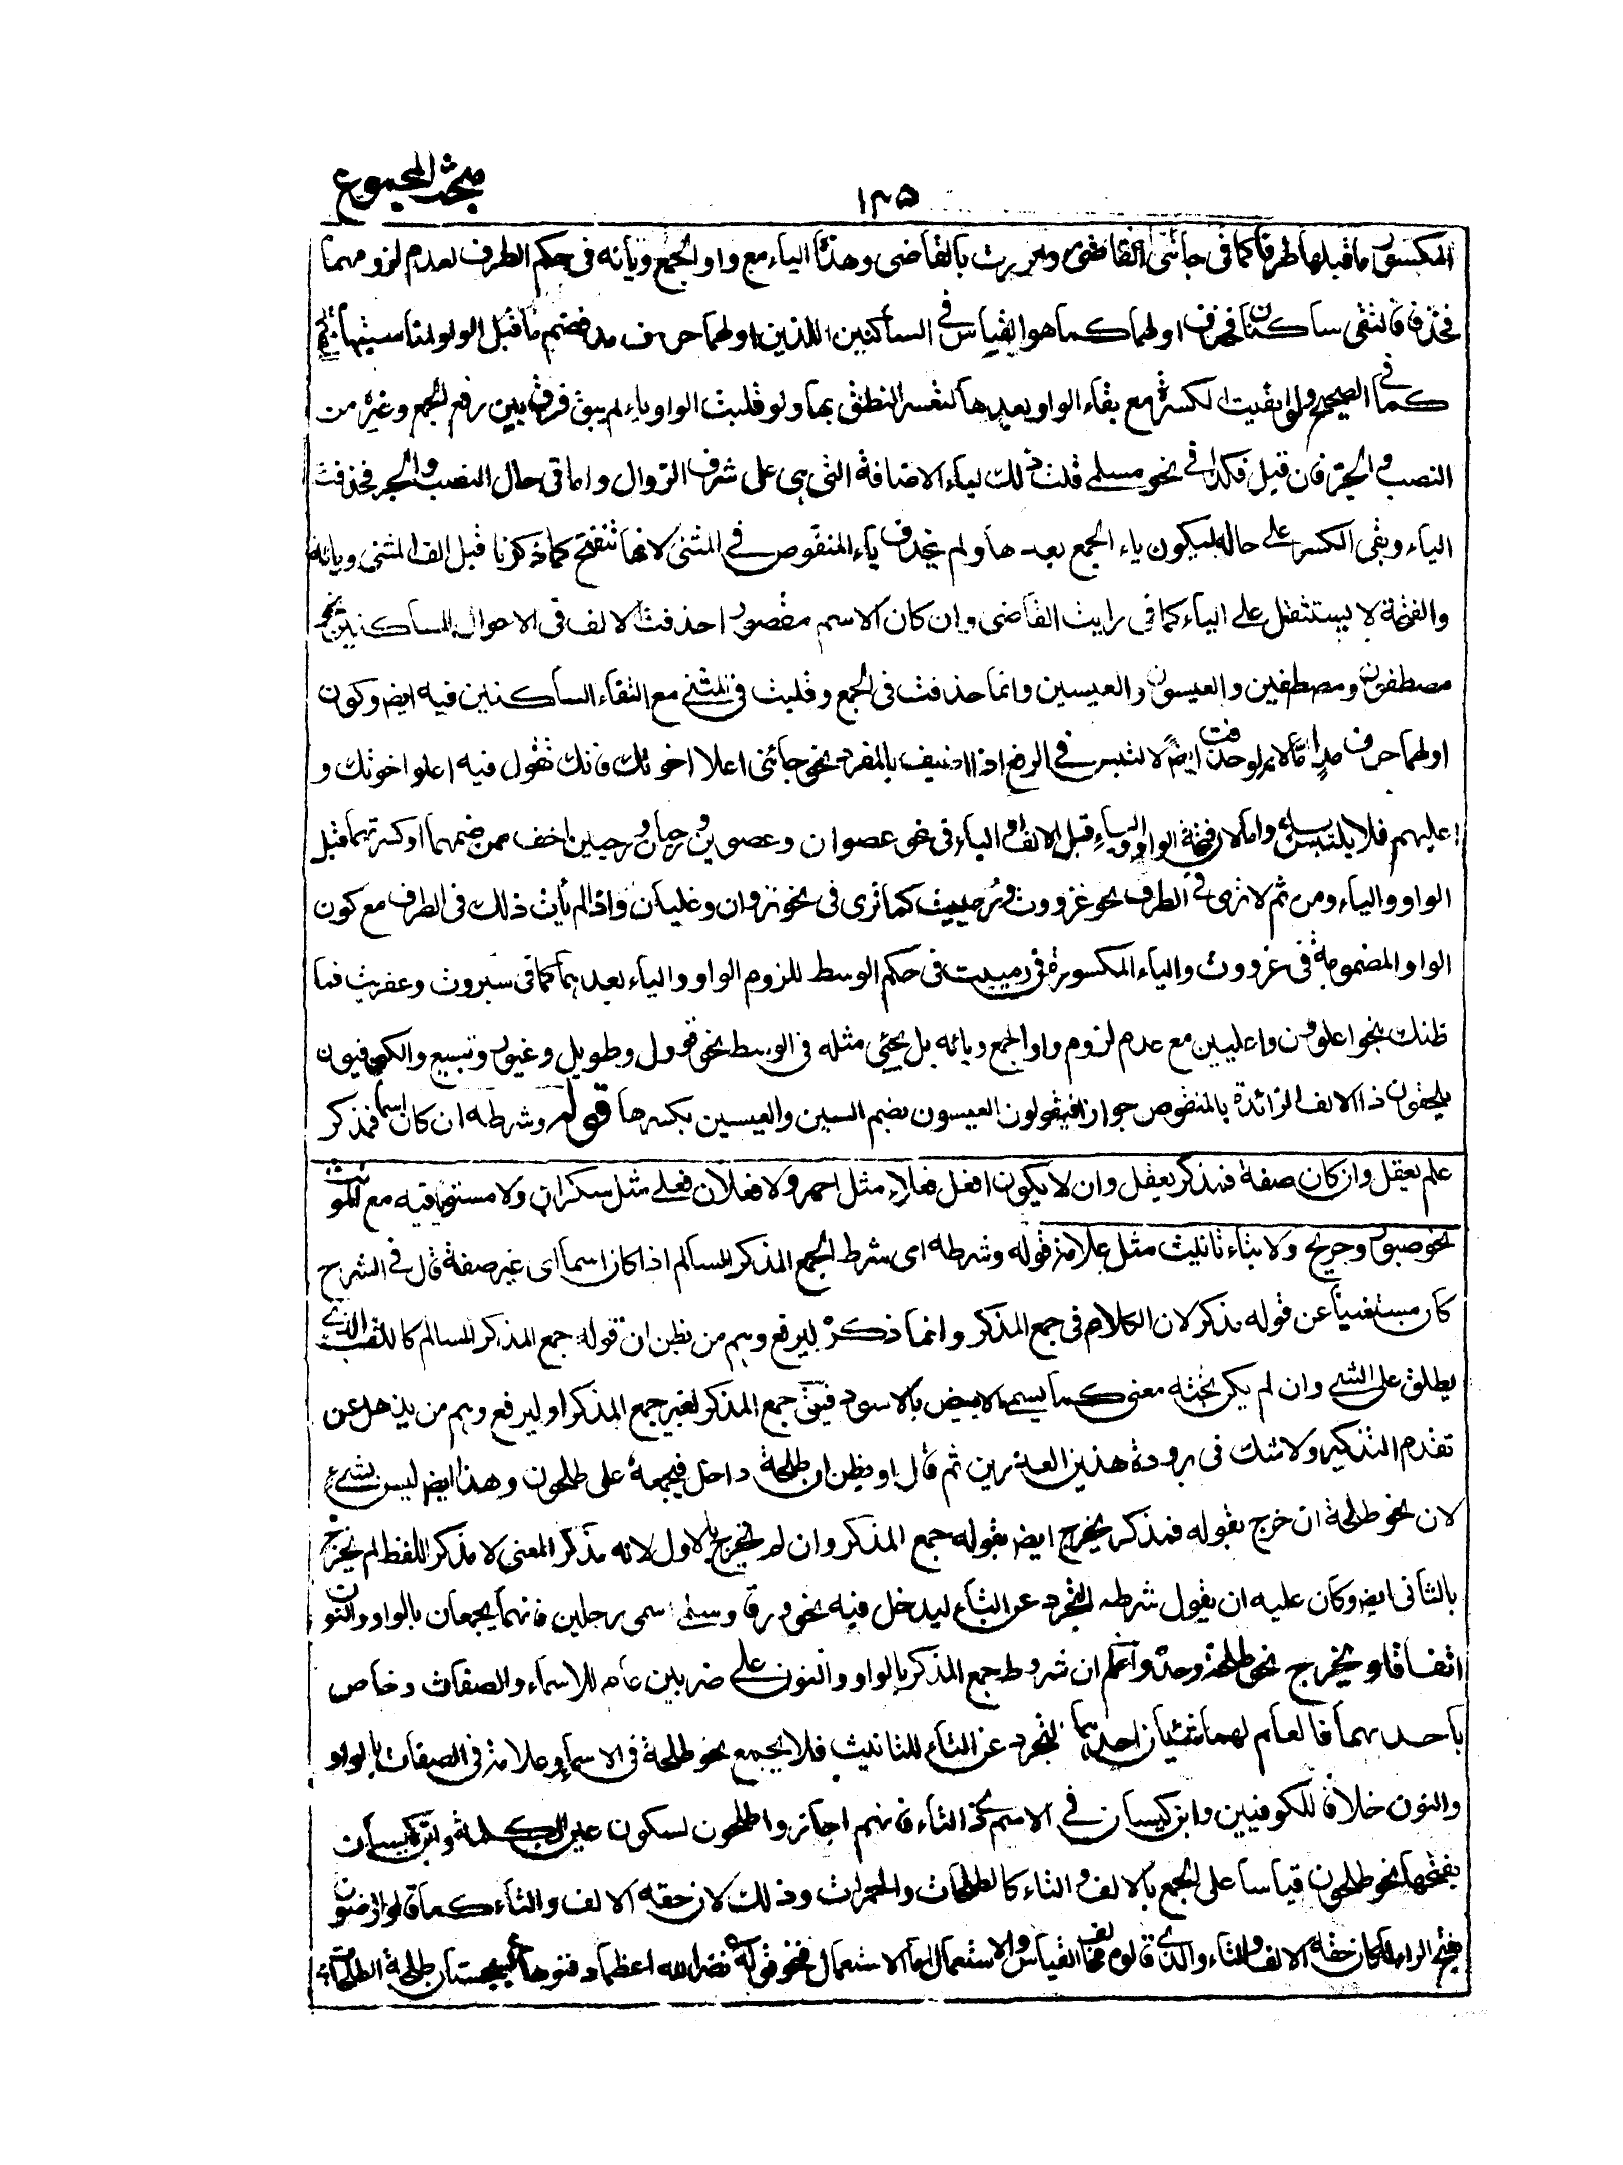 مبحث المجموع
١٣٥
المكسور ما قبلها طرفا كما فى جائنى القاضى ومررت بالقاضى وهذا الياء مع واو الجمع ويائه فى حكم الطرف لعدم لزومهما
فحذف فالتقى ساكنان فحذف اولهما كما هو القياس فى الساكنين اللذين اولهما حرف مد فضم ما قبل الواو لمناسبتها
كما فى الصحيح ولو ابقيت الكسرة مع بقاء الواو بعدها لتعسر النطق بها ولو قلبت الواو ياء لم يبق فرق بين رفع الجمع وغيره من
النصب والجر فان قيل فكذا فى نحو مسلمى قلت ذلك لياء الاضافة التى هى على شرف الزوال واما فى حال النصب والجر فحذفت
الياء وبقى الكسر على حاله ليكون ياء الجمع بعدها ولم يحذف ياء المنقوص فى المثنى لانها تنفتح كما ذكرنا قبل الف المثنى ويائه
والفتحة لا يستثقل على الياء كما فى رايت القاضى وان كان الاسم مقصورا حذفت الالف فى الاحوال للساكنين نحو
مصطفون ومصطفين والعيسون والعيسين وانما حذفت فى الجمع وقلبت فى المثنى مع التقاء الساكنين فيه ايضا وكون
اولهما حرف مد اما لانه لو حذفت ايضا لالتبس فى الرفع اذا اضيف بالمفرد نحو جائنى اعلا اخوتك فانك تقول فيه اعلو اخوتك و
عليهم فلا يلتبس واما لان فتحة الواو والياء قبل الالف والياء فى نحو عصوان وعصوين ورحيان ورحيين اخف من ضمهما او كسرتهما قبل
الواو والياء ومن ثم لا ترى فى الطرف نحو غزووت ورحييت كما ترى فى نحو نزوان وغليان واذا لم يأت ذلك فى الطرف مع كون
الواو المضمومة فى غزووت والياء المكسورة فى رمييت فى حكم الوسط للزوم الواو والياء بعدهما كما فى سبروت وعفريت فما
ظنك بنحو اعلوون واعليين مع عدم لزوم واو الجمع ويائه بل يجئ مثله فى الوسط نحو قوول وطويل وغيور وتسييع والكوفيون
يلحقون ذا الالف الزائدة بالمنقوص جوازا فيقولون العيسون بضم السين والعيسين بكسرها قوله وشرطه ان كان اسما فمذكر
علم يعقل وان كان صفة فمذكر يعقل وان لا يكون افعل فعلاء مثل احمر ولا فعلان فعلى مثل سكران ولا مستويا فيه مع المؤنث
نحو صبور وجريح ولا بتاء تانيث مثل علامة قوله وشرطه اى شرط الجمع المذكر السالم اذا كان اسما اى غير صفة قال فى الشرح
كان مستغنيا عن قوله مذكر لان الكلام فى جمع المذكر وانما ذكره ليرفع وهم من يظن ان قوله جمع المذكر السالم كاللقب الذى
يطلق على الشئ وان لم يكن تحته معنى كما يسمى الابيض بالاسود فيقى جمع المذكر لغير جمع المذكر او ليرفع وهم من يذهل عن
تقدم التذكير ولا شك فى برودة هذين العذرين ثم قال او يظن ان طلحة داخل فيجمعه على طلحون وهذا ايضا ليس بشئ
لان نحو طلحة ان خرج بقوله فمذكر يخرج ايضا بقوله جمع المذكر وان لم يخرج بالاول لانه مذكر المعنى لا مذكر اللفظ لم يخرج
بالثانى ايضا وكان عليه ان يقول شرطه التجرد عن التاء ليدخل فيه نحو ورقا وسلمى اسمى رجلين فانهما يجمعان بالواو والنون
اتفاقا ويخرج نحو طلحة وحده واعلم ان شروط جمع المذكر بالواو والنون على ضربين عام للاسماء والصفات وخاص
باحدهما فالعام لهما شيئان احدهما التجرد عن التاء للتانيث فلا يجمع نحو طلحة فى الاسماء وعلامة فى الصفات بالواو
والنون خلافا للكوفيين وابن كيسان فى الاسم ذى التاء فانهم اجازوا طلحون بسكون عين الكلمة وابن كيسان
بفتحها نحو طلحون قياسا على الجمع بالالف والتاء كالطلحات والحمزات وذلك لان حقه الالف والتاء كما قالوا ارضون
بفتح الراء لما كان حقه الالف والتاء والذى قالوه مخالف للقياس والاستعمال اما الاستعمال فنحو قوله نضر الله اعظما دفنوها بسجستان طلحة الطلحات